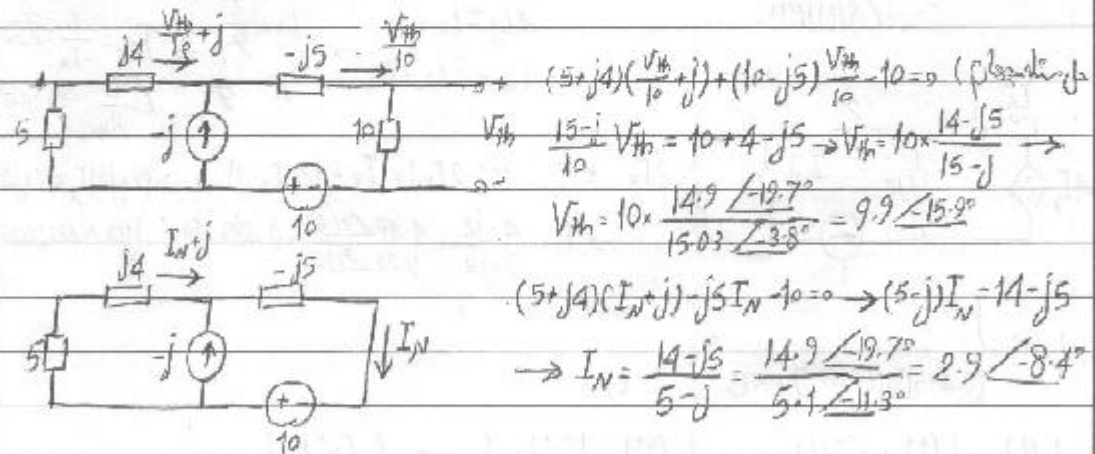 j4 Vth/10 + j -j5 Vth/10
+ +
5 -j 10 Vth
+ - -
10
(5+j4)(Vth/10 + j) + (10-j5) Vth/10 - 10 = 0
15-j/10 Vth = 10+4-j5 → Vth = 10× 14-j5/15-j →
Vth = 10× 14.9 ∠-19.7°/15.03 ∠-3.8° = 9.9 ∠-15.9°
j4 IN+j -j5
5 -j IN
+ -
10
(5+j4)(IN+j) - j5IN - 10 = 0 → (5-j)IN = 14-j5
→ IN = 14-j5/5-j = 14.9 ∠-19.7°/5.1 ∠-11.3° = 2.9 ∠-8.4°